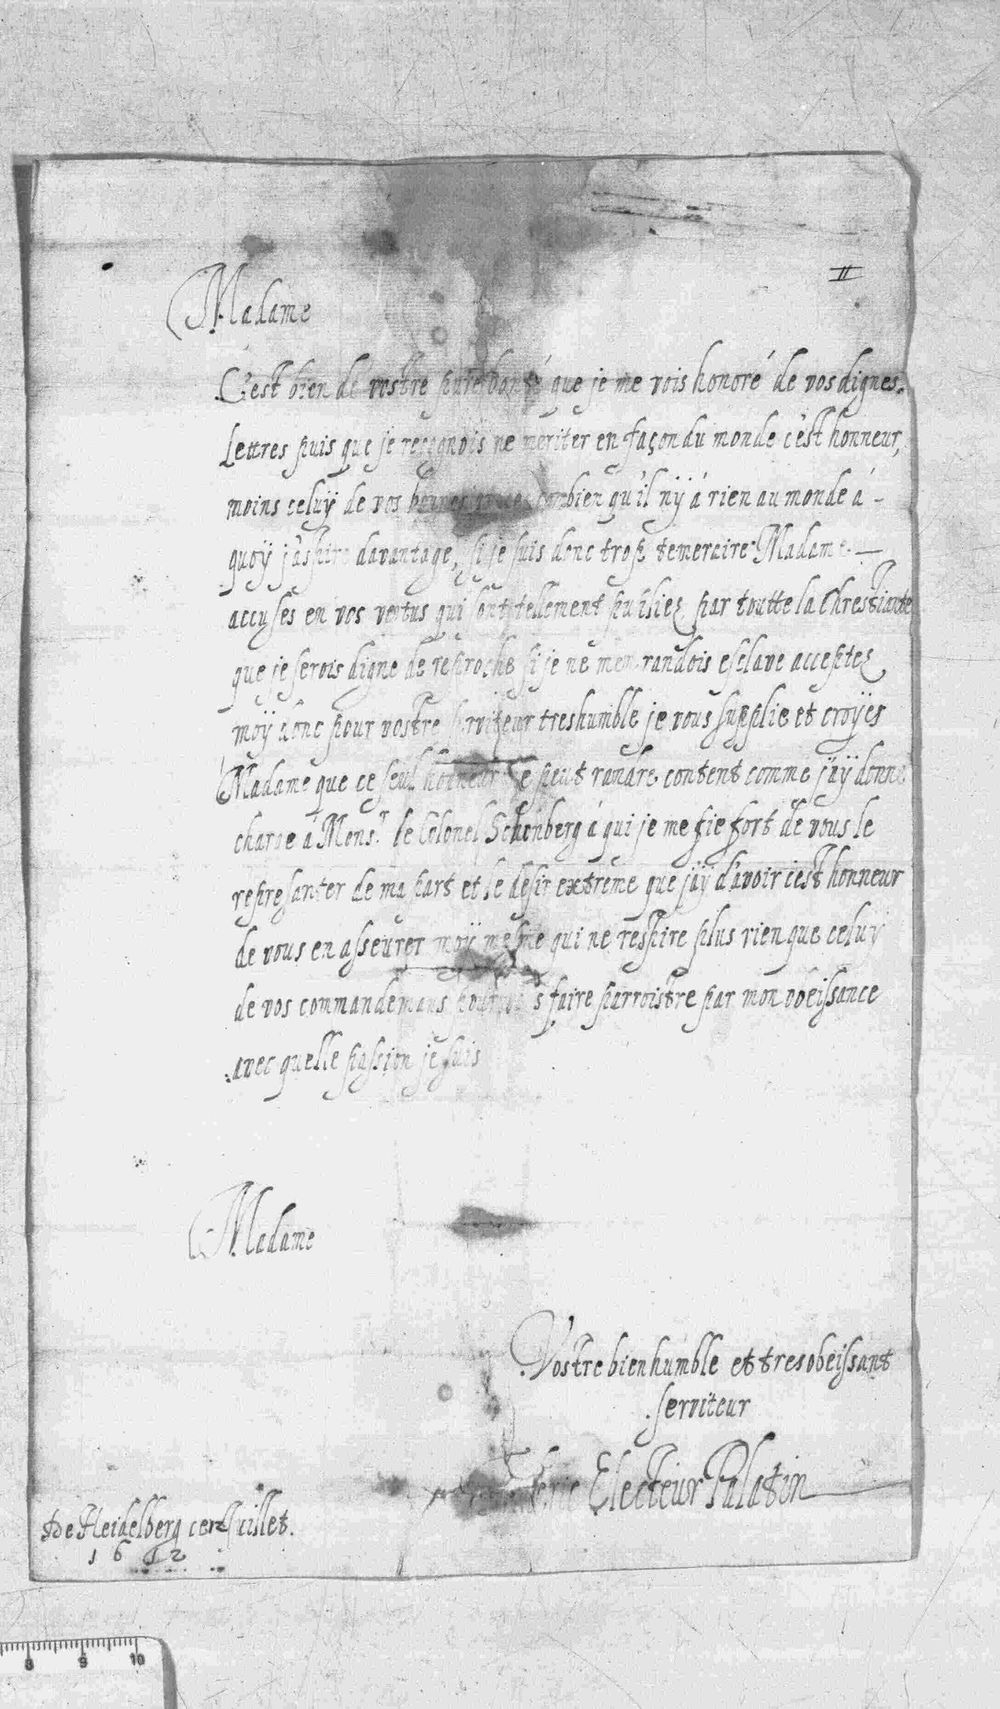 II
Madame
C'est bien de vostre pure bonté que je me vois honoré de vos dignes
Lettres puis que je recognois ne meriter en façon du monde c'est honneur,
moins celuÿ de vos bonnes combien qu'il nÿ á rien au monde á -
quoÿ j'aspire davantage, si je suis donc trop temeraire Madame
accuses en vos vertus qui sont tellement publiez par toutte la Chrestiante
que je serois digne de reproche si je ne m'en randois esclave acceptez
moÿ donc pour vostre serviteur treshumble je vous supplie et croÿes
Madame que ce seul honneur me peut randre content comme j'aÿ donné
charge á Mons.r le Colonel Schonberg á qui je me fie fort de vous le
represanter de ma part et le desir extreme que j'aÿ d'avoir cest honneur
de vous en asseurer moÿ mesme qui ne respire plus rien que celuy
de vos commandemans pour vous faire parroistre par mon obeissance
avec quelle passion je suis
Madame
Vostre bien humble et tres obeissant
serviteur
Electeur Palatin
De Heidelberg ce Juillet.
1612
8 9 10